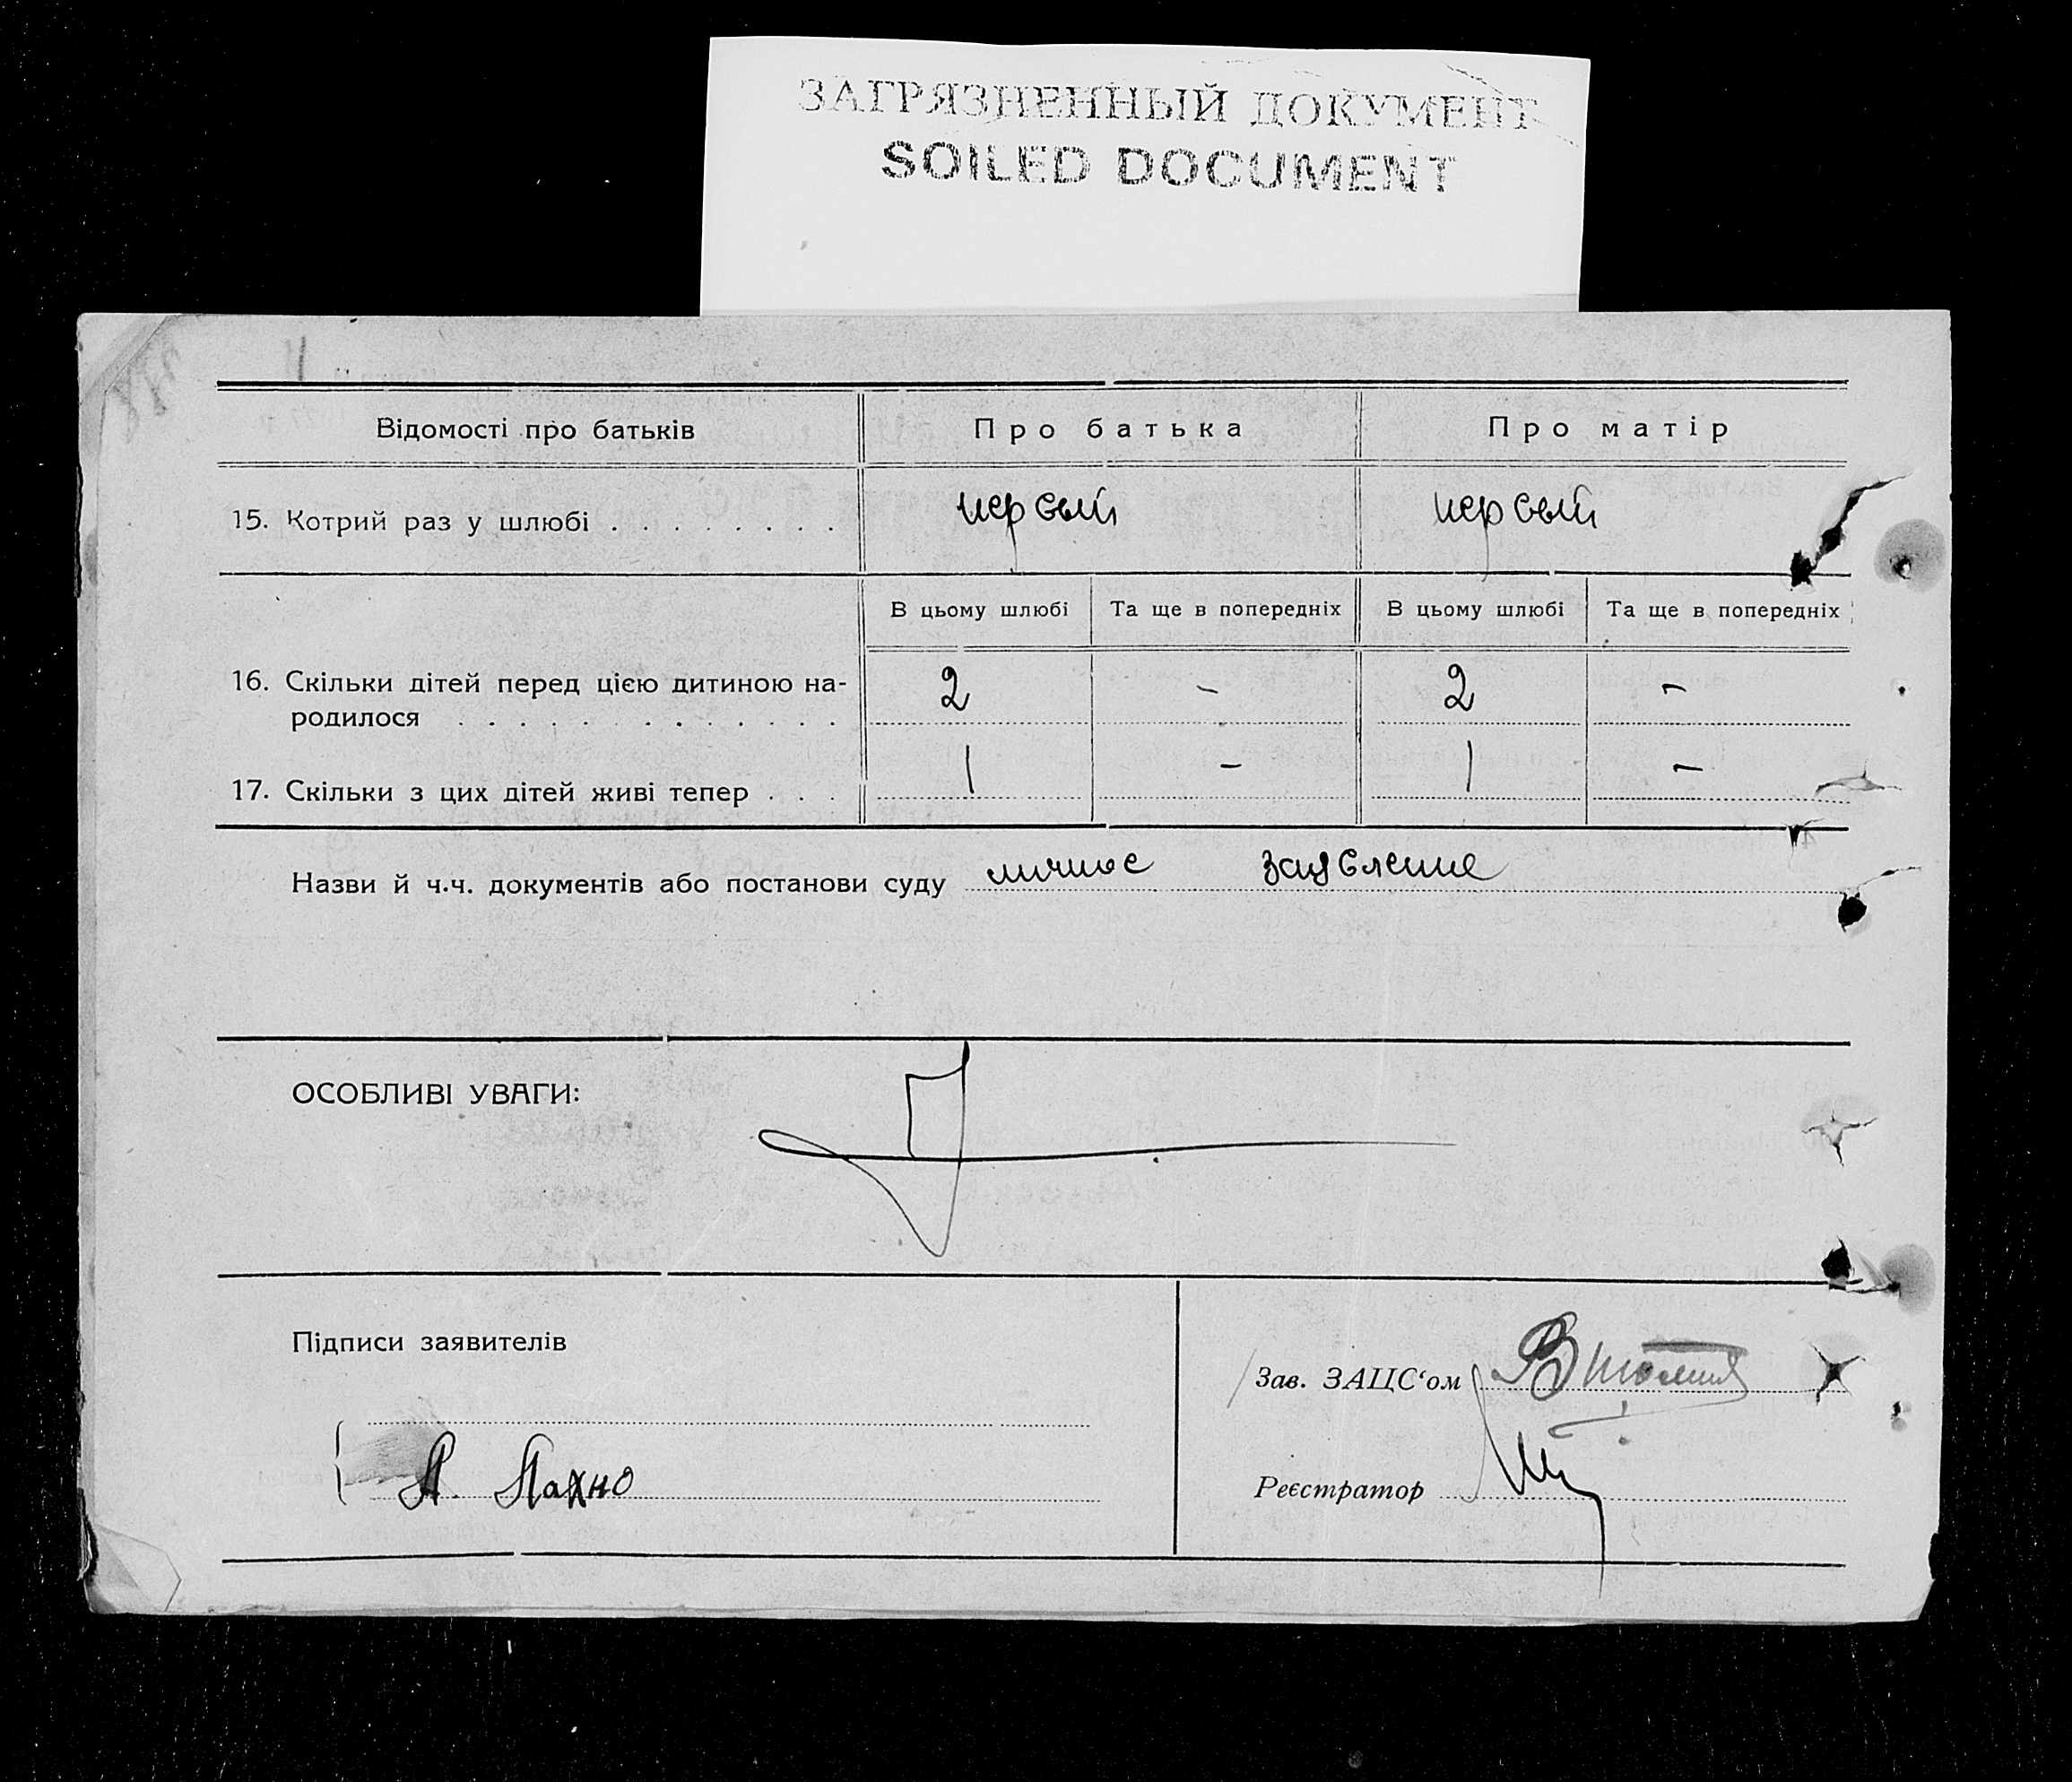 ЗАГРЯЗНЕННЫЙ ДОКУМЕНТ
SOILED DOCUMENT
Відомості про батьків Про батька Про матір
15. Котрий раз у шлюбі . . . . . . . . первый первый
В цьому шлюбі Та ще в попередніх В цьому шлюбі Та ще в попередніх
16. Скільки дітей перед цією дитиною на-
родилося . . . . . . . . . . . . . 2 - 2 -
17. Скільки з цих дітей живі тепер . . . 1 - 1 -
Назви й ч.ч. документів або постанови суду личное заявление
ОСОБЛИВІ УВАГИ:
Підписи заявителів
Зав. ЗАЦС‘ом
А. Пахно
Реєстратор